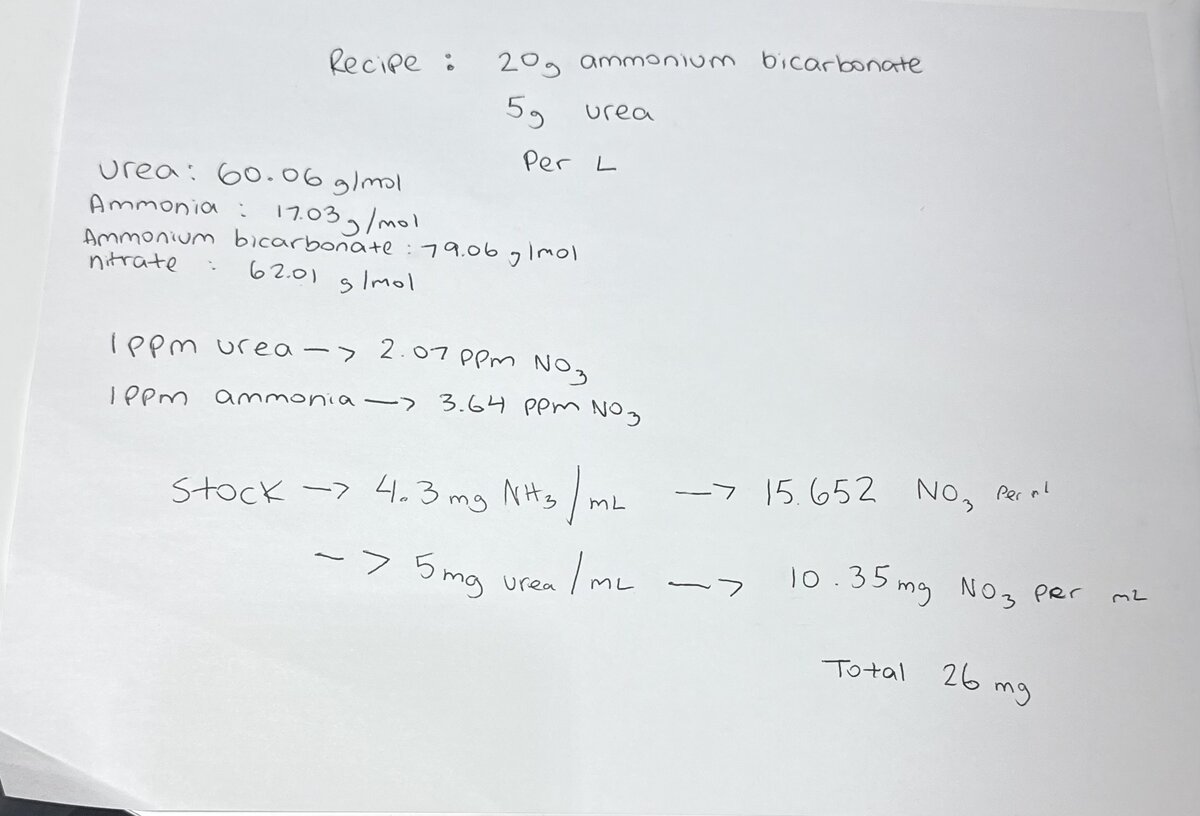 Recipe : 20g ammonium bicarbonate
5g urea
Per L
Urea: 60.06 g/mol
Ammonia : 17.03 g/mol
Ammonium bicarbonate : 79.06 g/mol
nitrate : 62.01 g/mol
1ppm urea —> 2.07 ppm NO3
1ppm ammonia —> 3.64 ppm NO3
Stock —> 4.3mg NH3/mL —> 15.652 NO3 Per
—> 5mg urea/mL —> 10.35mg NO3 per mL
Total 26 mg